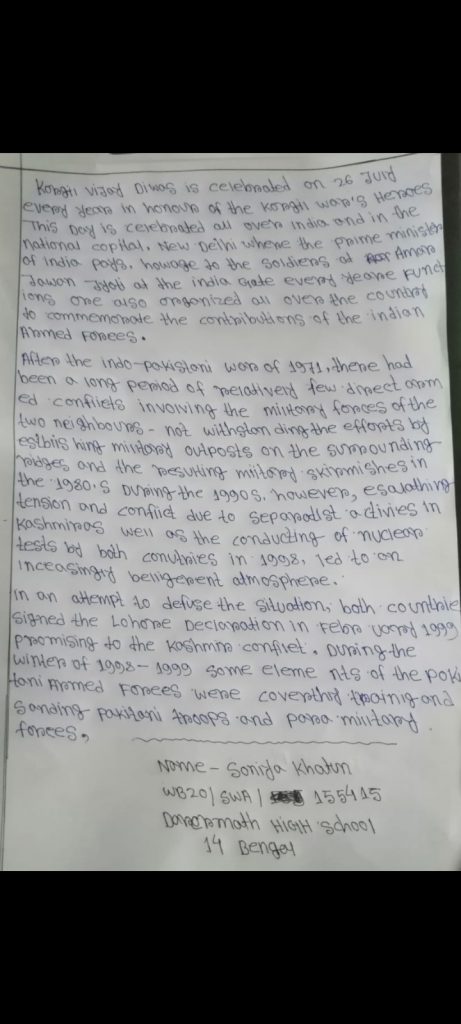 Kargil Vijay Diwas is celebrated on 26 July
every year in honour of the Kargil war's Heroes
This Day is celebrated all over India and in the
national copital, New Delhi where the prime minister
of India pays, howage to the soldiers at Amar
Jawan Jyoti at the india Gate every yeare Funct
ions are also organized all over the country
to commemorate the contributions of the indian
Armed Forcees.
After the indo-pakistani war of 1971, there had
been a long period of relatively few direct arm
ed conflicts involving the military forces of the
two neighbours - not withstan ding the efforts by
estblis hing military outposts on the surrounding
ridges and the resulting military skirmishes in
the 1980.S During the 1990s, however, esalathing
tension and conflict due to separatist activies in
Kashmir as well as the conducting of nuclear
tests by both conutries in 1998, led to an
inceasingly belligerent atmosphere.
in an attempt to defuse the situation, both countrie
signed the Lahore Declaration in Febru uary 1999
promising to the Kashmir conflict. During the
winter of 1998-1999 some eleme nts of the paki
tani Armed Forcees were covertly trainig and
sanding pakistani troops and para military
forcees,
Name - Sonija Khatun
WB20/SWA/ 155415
High School
14 Bengal